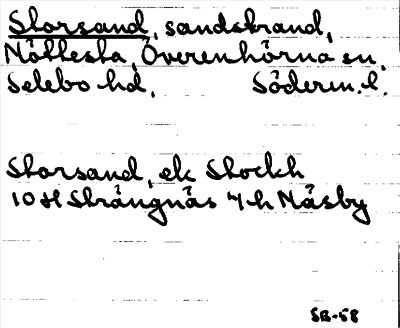 Storsand, sandstrand,
Nöttesta, Överenhörna sn.
Selebo hd. Söderm. l.
Storsand, ek Stockh
10 H Strängnäs 7 h Näsby
SB-58